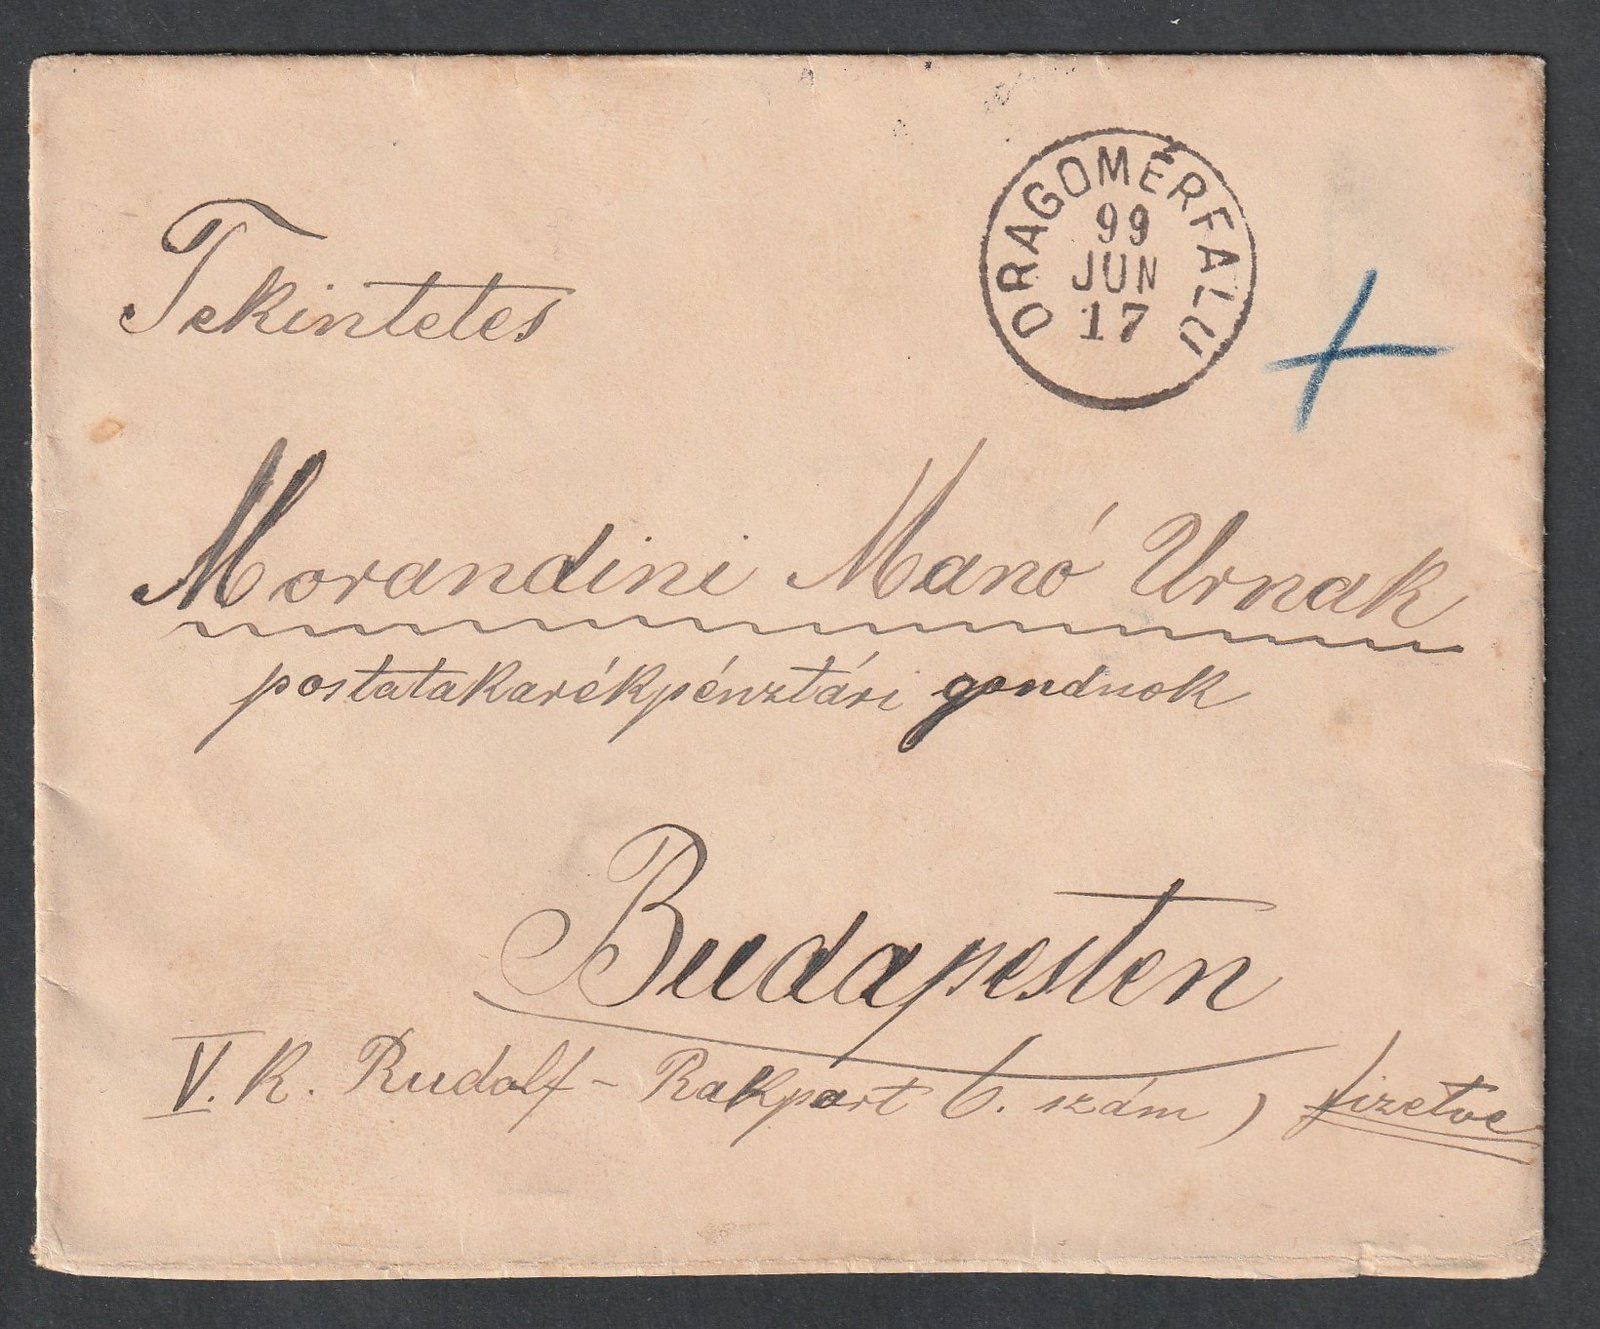 DRAGOMÉRFALU
99
JUN
17
Tekintetes
Morandini Manó Urnak
postatakarékpénztári gondnok
Budapesten
V. K. Rudolf - Rakpart 6. szám) fizetve